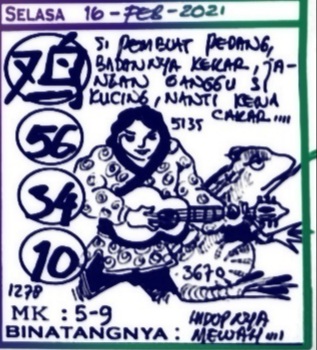 SELASA 16-FEB-2021
鸡
SI PEMBUAT PEDANG,
BADANNYA KEKAR, JA-
NGAN GANGGU SI
KUCING, NANTI KENA
CAKAR....
5135
56
34
10
3670
1278
MK : 5-9
BINATANGNYA : HIDUPNYA
MEWAH...